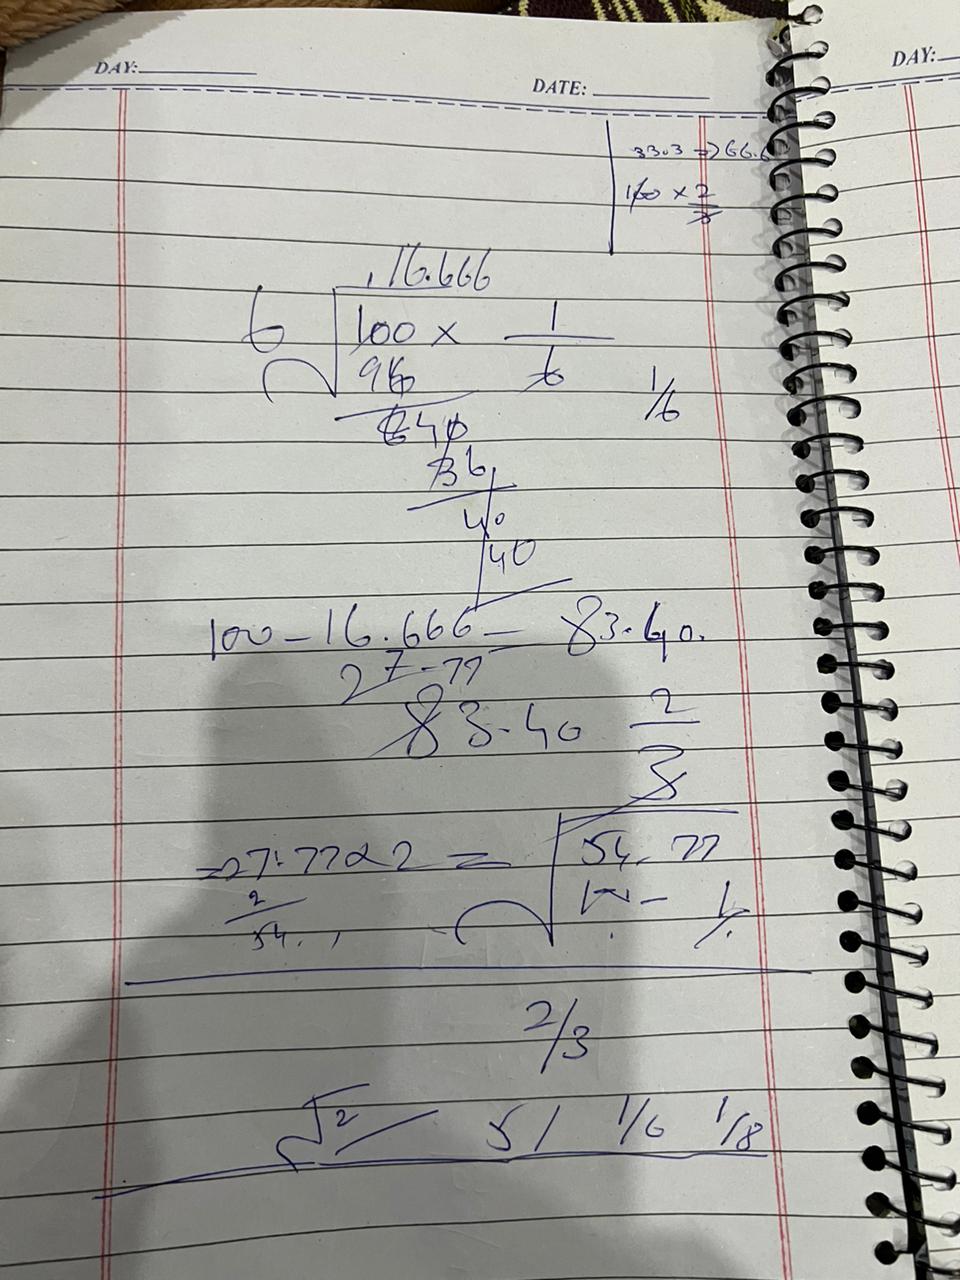 DAY:
DATE:
DAY:
33.3 => 66.6
100 × 2
3
16.666
6 100 × 1
96 6
640 1/6
36
40
40
100 - 16.666 = 83.40.
27.77
83.40 2
3
=27.77 × 2 = 54.77
2
54.
2/3
√2 5/ 1/6 1/8